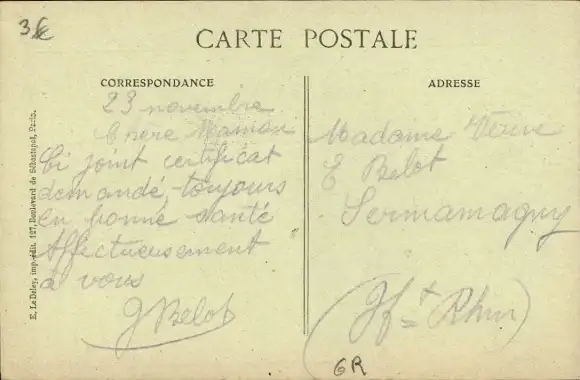 3€
CARTE POSTALE
CORRESPONDANCE
23 novembre
Chère Maman
Ci joint certificat
demandé, toujours
en bonne santé
Affectueusement
à vous
J Belot
ADRESSE
Madame Veuve
E Belot
Sermamagny
(Ht Rhin)
GR
E. Le Deley, imp.-édit. 127, Boulevard de Sébastopol, Paris.